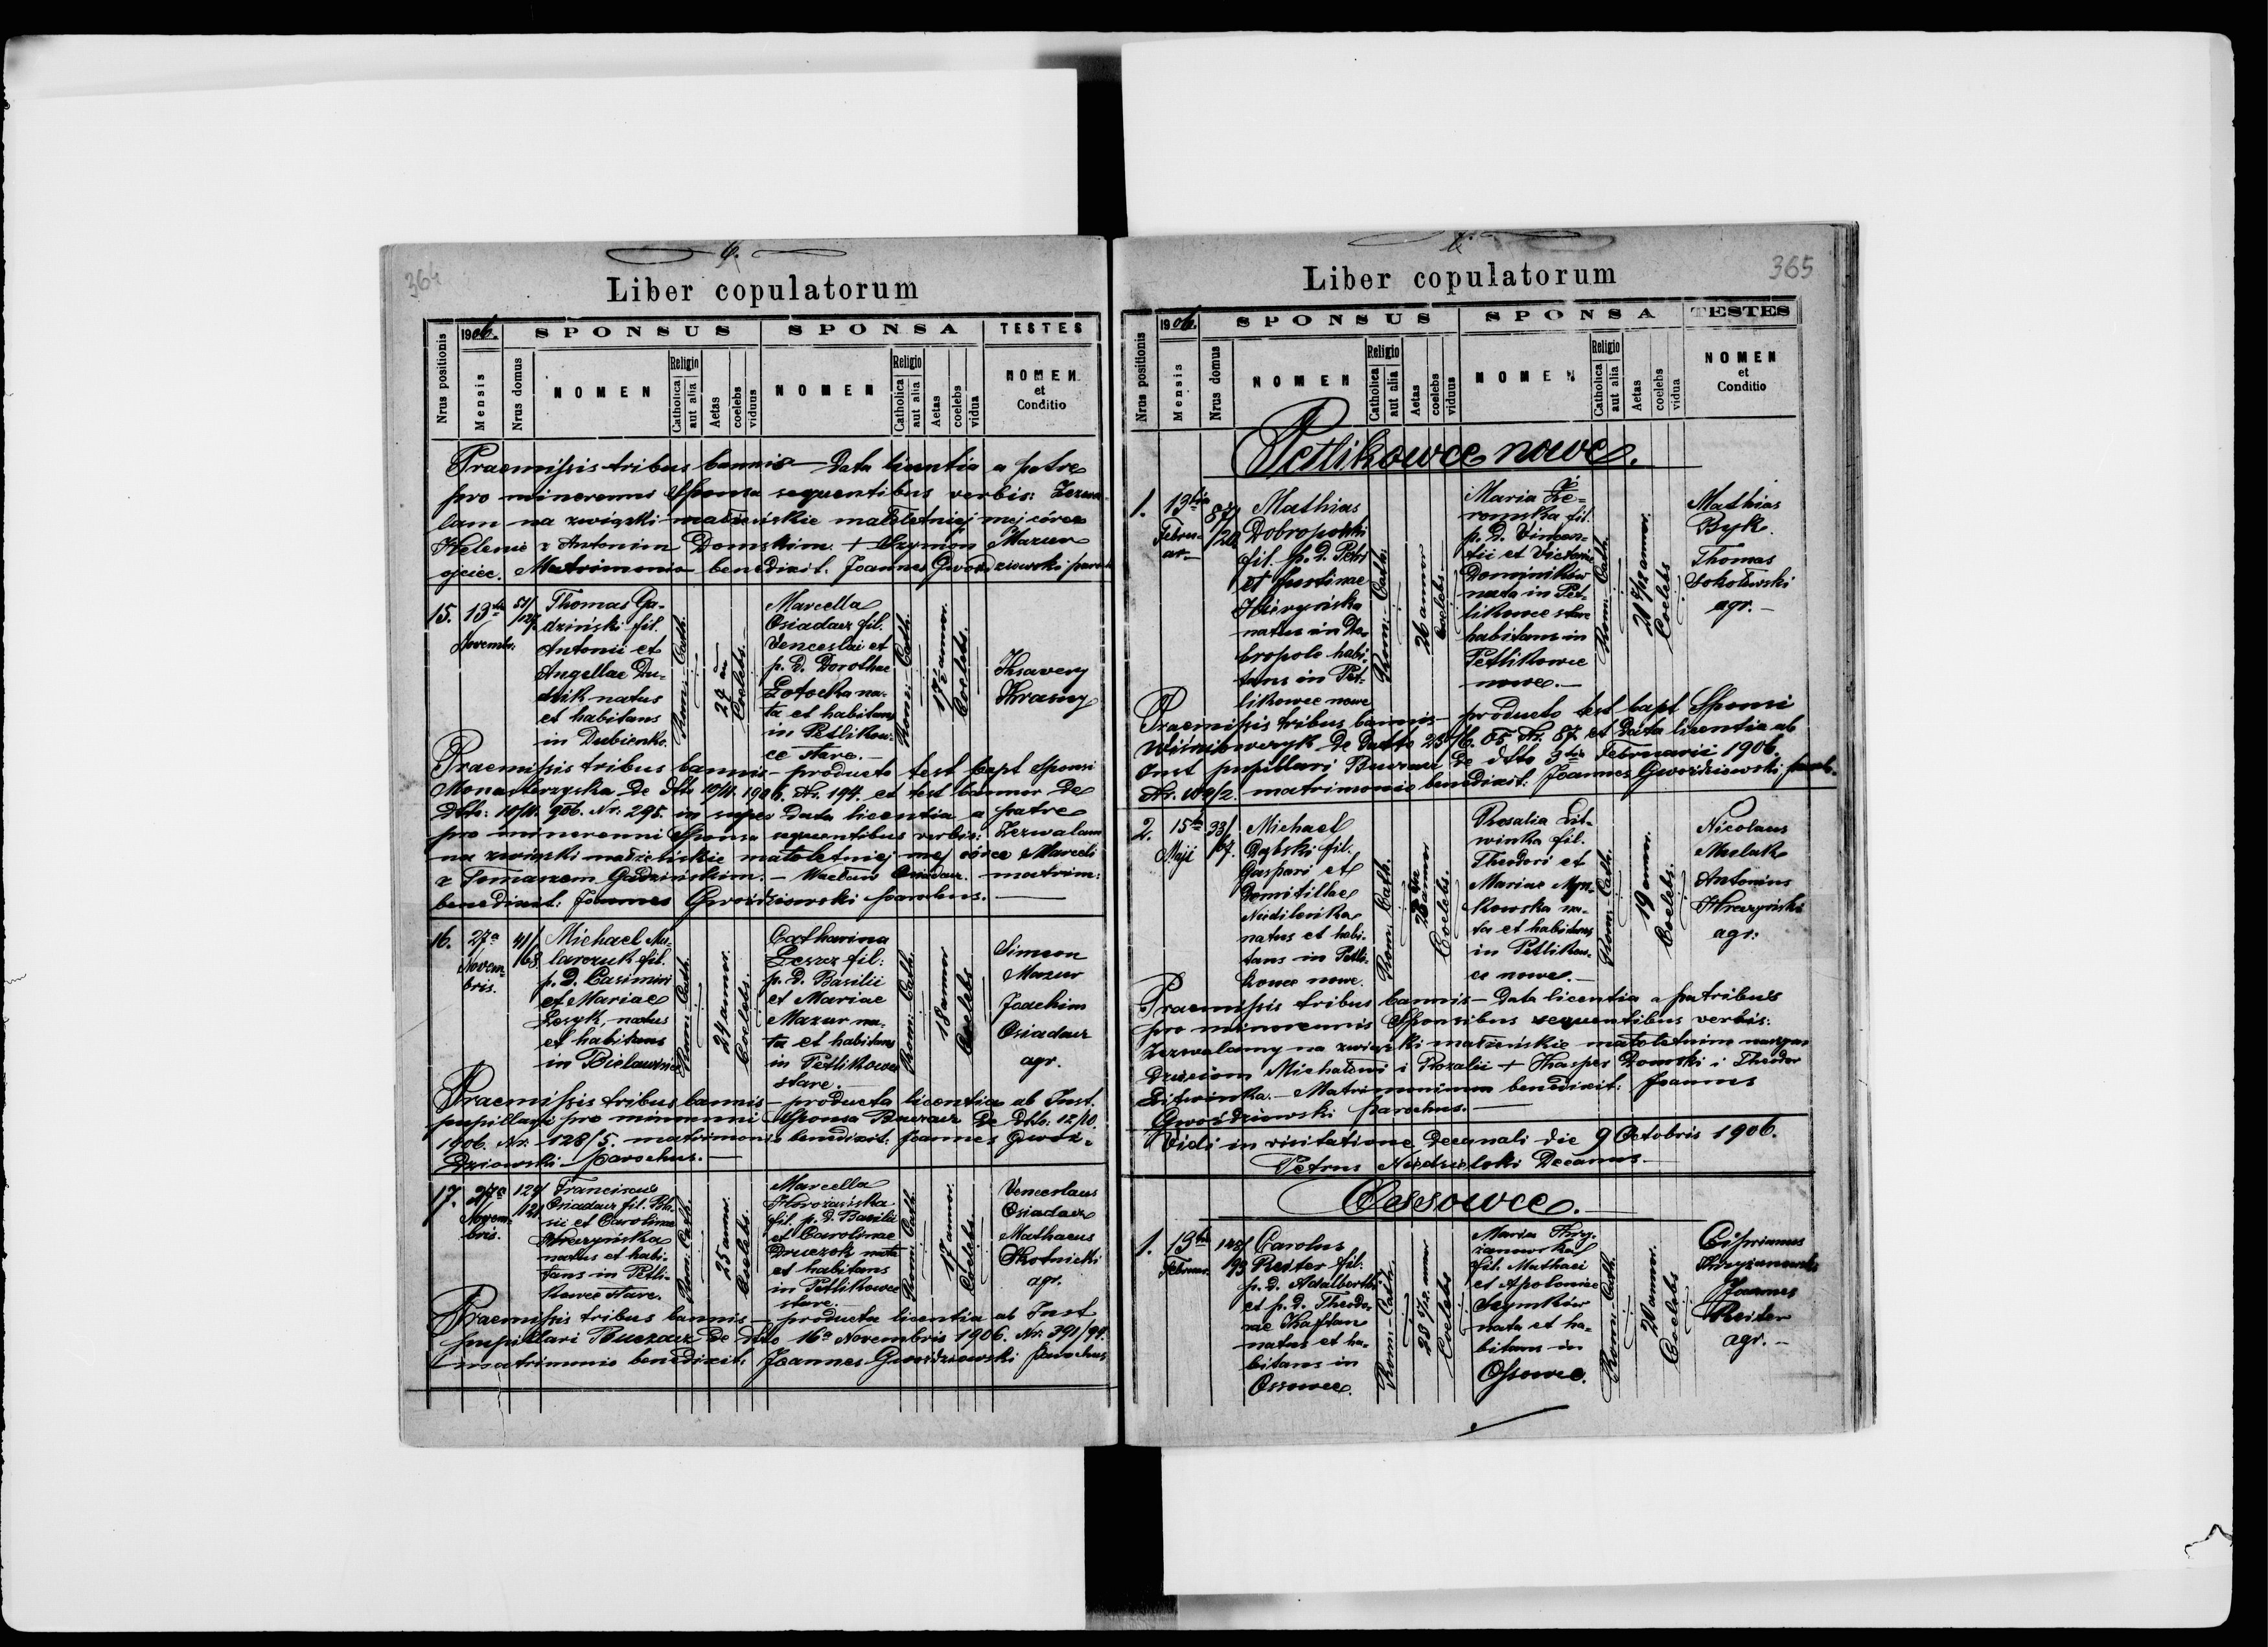 364
6.
Liber copulatorum
Nrus positionis
1906.
Mensis
SPONSUS
Nrus domus
NOMEN
Religio
Catholica
aut alia
Aetas
coelebs
viduus
SPONSA
NOMEN
Religio
Catholica
aut alia
Aetas
coelebs
vidua
TESTES
NOMEN
et
Conditio
Praemissis tribus bannis – data licentia a patre
pro minorenni Sponsa sequentibus verbis: Zezwa-
lam na związki małżeńskie małoletniej mej córce
Helenie z Antonim Domskim. + Szymon Mazur
ojciec. Matrimonio benedixit. Joannes Gwoździowski paroch
15.
13tia
Novembr.
51/
127.
Thomas Ga-
dziński fil.
Antonii et
Angellae Du-
dzik natus
et habitans
in Dubienko.
Rom: Cath.
Coelebs.
Marcella
Osiadacz fil.
Venceslai et
p. d. Dorotheae
Łotocka na-
ta et habitans
in Petlikow-
ce stare.
Rom: Cath.
17½ annor.
Coelebs.
Ksawery
Krasny
Praemissis tribus bannis – producto test bapt Sponsi
Monasterzyska de dtto 10/11. 1906. Nr. 194. et test bannor de
dtto: 10/11. 906. Nr. 295. in super data licentia a patre
pro minorenni Sponsa sequentibus verbis: Zezwalam
na związki małżeńskie małoletniej mej córce Marceli
z Tomaszem Gadzińskim. – Wacław Osiadacz. matrim:
benedixit: Joannes Gwoździowski parochus.
16.
27a
Novem-
bris.
41/
168.
Michael Mu-
larczuk fil.
p. d. Casimiri
et Mariae
Łesyk, natus
et habitans
in Bielawińce
Rom: Cath.
24 annor.
Coelebs.
Catharina
Lesor fil:
p. d. Basilii
et Mariae
Mazur na-
ta et habitans
in Petlikowce
stare.
Rom: Cath.
18 annor
Coelebs
Simeon
Mazur
Joachim
Osiadacz
agr.
Praemissis tribus bannis – producta licentia ab Inst.
pupillari pro minorenni Sponsa Buczacz de dtto: 12/10.
1906. Nr. 128/5. matrimonio benedixit: Joannes Gwoź-
dziowski parochus.
17.
27a
Novem-
bris.
129/
121
Franciscus
Osiadacz fil. Ba-
silii et Carolinae
Hreczyńska
natus et habi-
tans in Petli-
kowce stare.
Rom: Cath.
25 annor.
Coelebs.
Marcella
Horożańska
fil. p. d. Basilii
et Carolinae
Druczok nata
et habitans
in Petlikowce
stare.
Rom: Cath.
17 annor.
Coelebs.
Venceslaus
Osiadacz
Mathaeus
Skotnicki
agr.
Praemissis tribus bannis – producta licentia ab Inst
pupillari Buczacz de dtto 16a Novembris 1906. Nr. 391/94.
matrimonio benedixit, Joannes Gwoździowski parochus
365
Liber copulatorum
Nrus positionis
1906.
Mensis
SPONSUS
Nrus domus
NOMEN
Religio
Catholica
aut alia
Aetas
coelebs
viduus
SPONSA
NOMEN
Religio
Catholica
aut alia
Aetas
coelebs
vidua
TESTES
NOMEN
et
Conditio
Petlikowce nowe.
1.
13tia
Febru-
ar
87/
120
Mathias
Dobropolski
fil. p. d. Petri
et Justinae
natus in Do-
bropole habi-
tans in Pet-
likowce nowe
Rom: Cath:
26 annor
Coelebs
Maria Że-
romska fil.
p. d. Vincen-
tii et Victoria
Dominików
nata in Pet-
likowce stare
habitans in
Petlikowce
nowe.
Rom: Cath.
Coelebs
Mathias
Byk.
Thomas
Sokołowski
agr.
Praemissis tribus bannis – producto test bapt Sponsi
Wiśniowczyk de datto 25/6. 05. Nr. 87. et data licentia ab
Inst pupillari Buczacz de dtto 3tia Februarii 1906.
Nr. 109/2. matrimonio benedixit: Joannes Gwoździowski paroch.
2.
15ta
Maji
33/
64.
Michael
Dąbski fil.
Gaspari et
Domitillae
natus et habi-
tans in Petli-
kowce nowe.
Rom: Cath.
Coelebs.
Rosalia Lit-
winka fil.
Theodori et
Mariae
na-
ta et habitans
in Petlikow-
ce nowe.
Rom: Cath.
19 annor.
Coelebs.
Nicolaus
Antonius
Hreczyński
agr:
Praemissis tribus bannis – data licentia a patribus
pro minorennis Sponsibus sequentibus verbis:
Zezwalamy na związki małżeńskie małoletnim naszym
dzieciom Michałowi i Rozalii + Kasper Domski i Theodor
Litwinka. – Matrimonium benedixit: Joannes
Gwoździowski parochus.
Vidi in visitatione decanali die 9 Octobris 1906.
Petrus Niedzielski Decanus
Ossowce.
1.
13tia
Februar.
148/
193
Carolus
Reiter fil:
p. d. Adalberti
et p. d. Theodo-
rae Kaftan
natus et ha-
bitans in
Ossowce.
Rom: Cath.
Coelebs
Maria Krzy-
żanowska
fil. Mathaei
et Apoloniae
Szymków
nata et ha-
bitans in
Ossowce.
Rom: Cath.
20 annor.
Coelebs
Ciprianus
Krzyżanowski
Joannes
Reiter
agr.